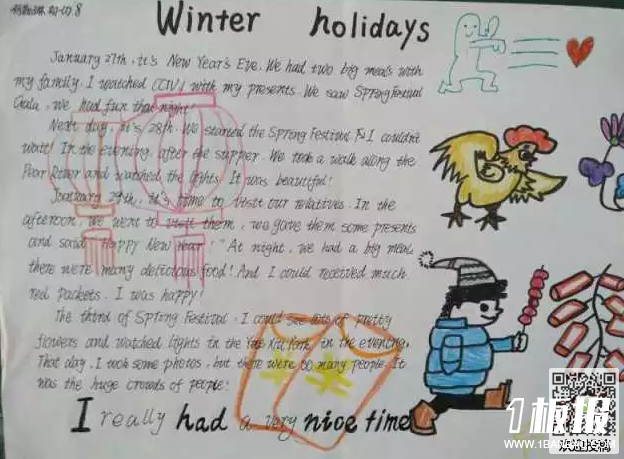 Winter holidays
January 27th, it's New Year's Eve. We had two big meals with
my family. I watched CCTV1 with my presents. We saw Spring Festival
Gala. We had fun that night!
Next day, it's 28th. We started the Spring Festival. I couldn't
wait! In the evening, after the supper. We took a walk along the
Pear River and watched the lights. It was beautiful!
January 29th, it's time to visit our relatives. In the
afternoon, we went to visit them, we gave them some presents
and said "Happy New Year!" At night, we had a big meal,
there were many delicious food! And I could received much
red packets. I was happy!
The third of Spring Festival. I could see lots of pretty
flowers and watched lights in the Park in the evening.
That day, I took some photos, but there were so many people. It
was the huge crowds of people!
I really had a very nice time
1板报
WWW.1BANBAO.COM
欢迎投稿